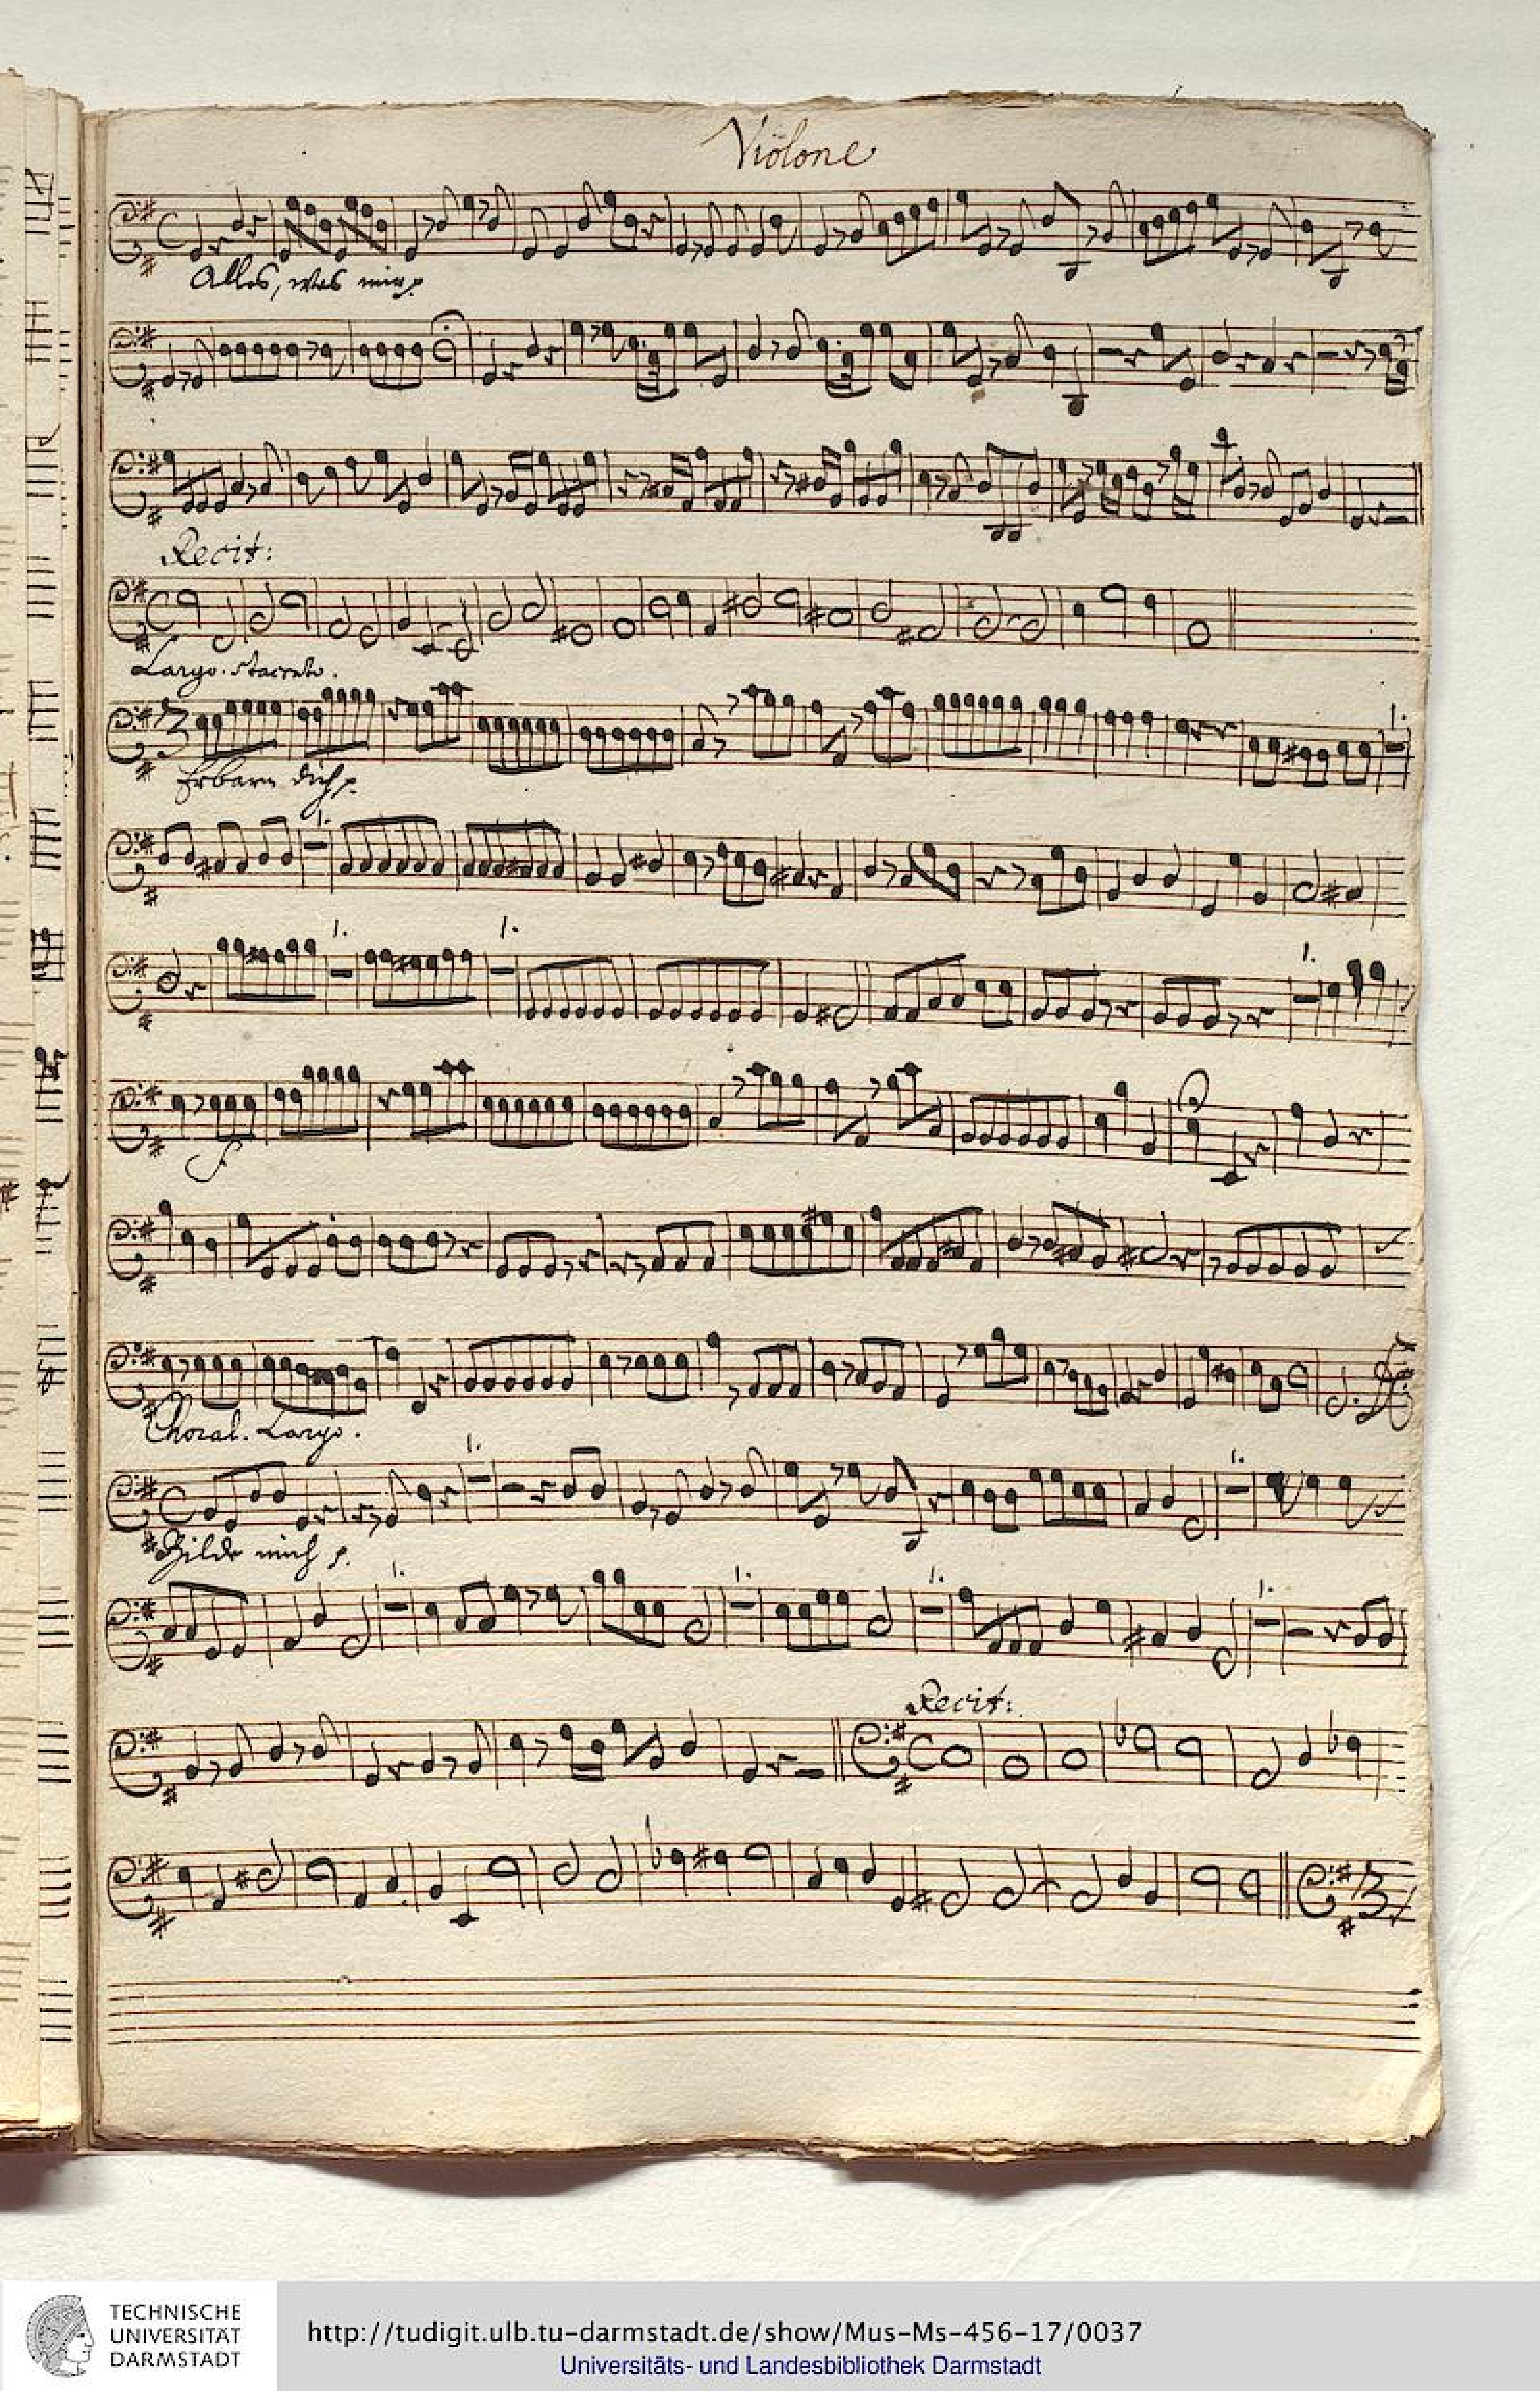 Violone
Alles, was mir
Recit:
Largo. staccato.
Erbarm dich
1.
1.
1.
1.
1.
Choral. Largo.
1.
1.
Bilde mich
1.
1.
1.
1.
Recit:
TECHNISCHE
UNIVERSITÄT
DARMSTADT
http://tudigit.ulb.tu-darmstadt.de/show/Mus-Ms-456-17/0037
Universitäts- und Landesbibliothek Darmstadt